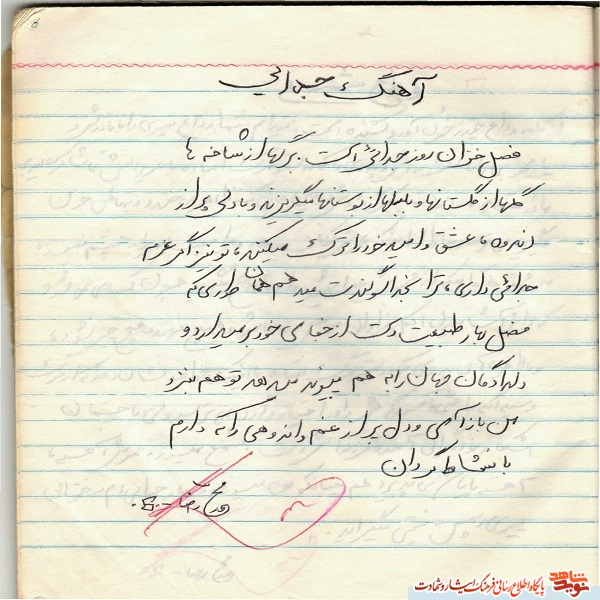 آهنگ جدائی
فصل خزان روز جدائی است برگها از شاخه ها
گلها از گلستانها و بلبلها از بوستانها میگریزند و با دلی پر از
اندوه ما عشق و امید خود را ترک میکنند، تو نیز اگر عزم
جدائی داری، ترا بخدا سوگندت میدهم همان طوری که
فصل بهار طبیعت دست از جفای خود بر میدارد و
دلدادگان جهان را به هم پیوند می دهد تو هم نیز د
پس باز آی و دل پر از غم و اندوهی را که دارم
با نشاط گردان
رضا
پایگاه اطلاع رسانی فرهنگ ایثار و شهادت
نوید شاهد